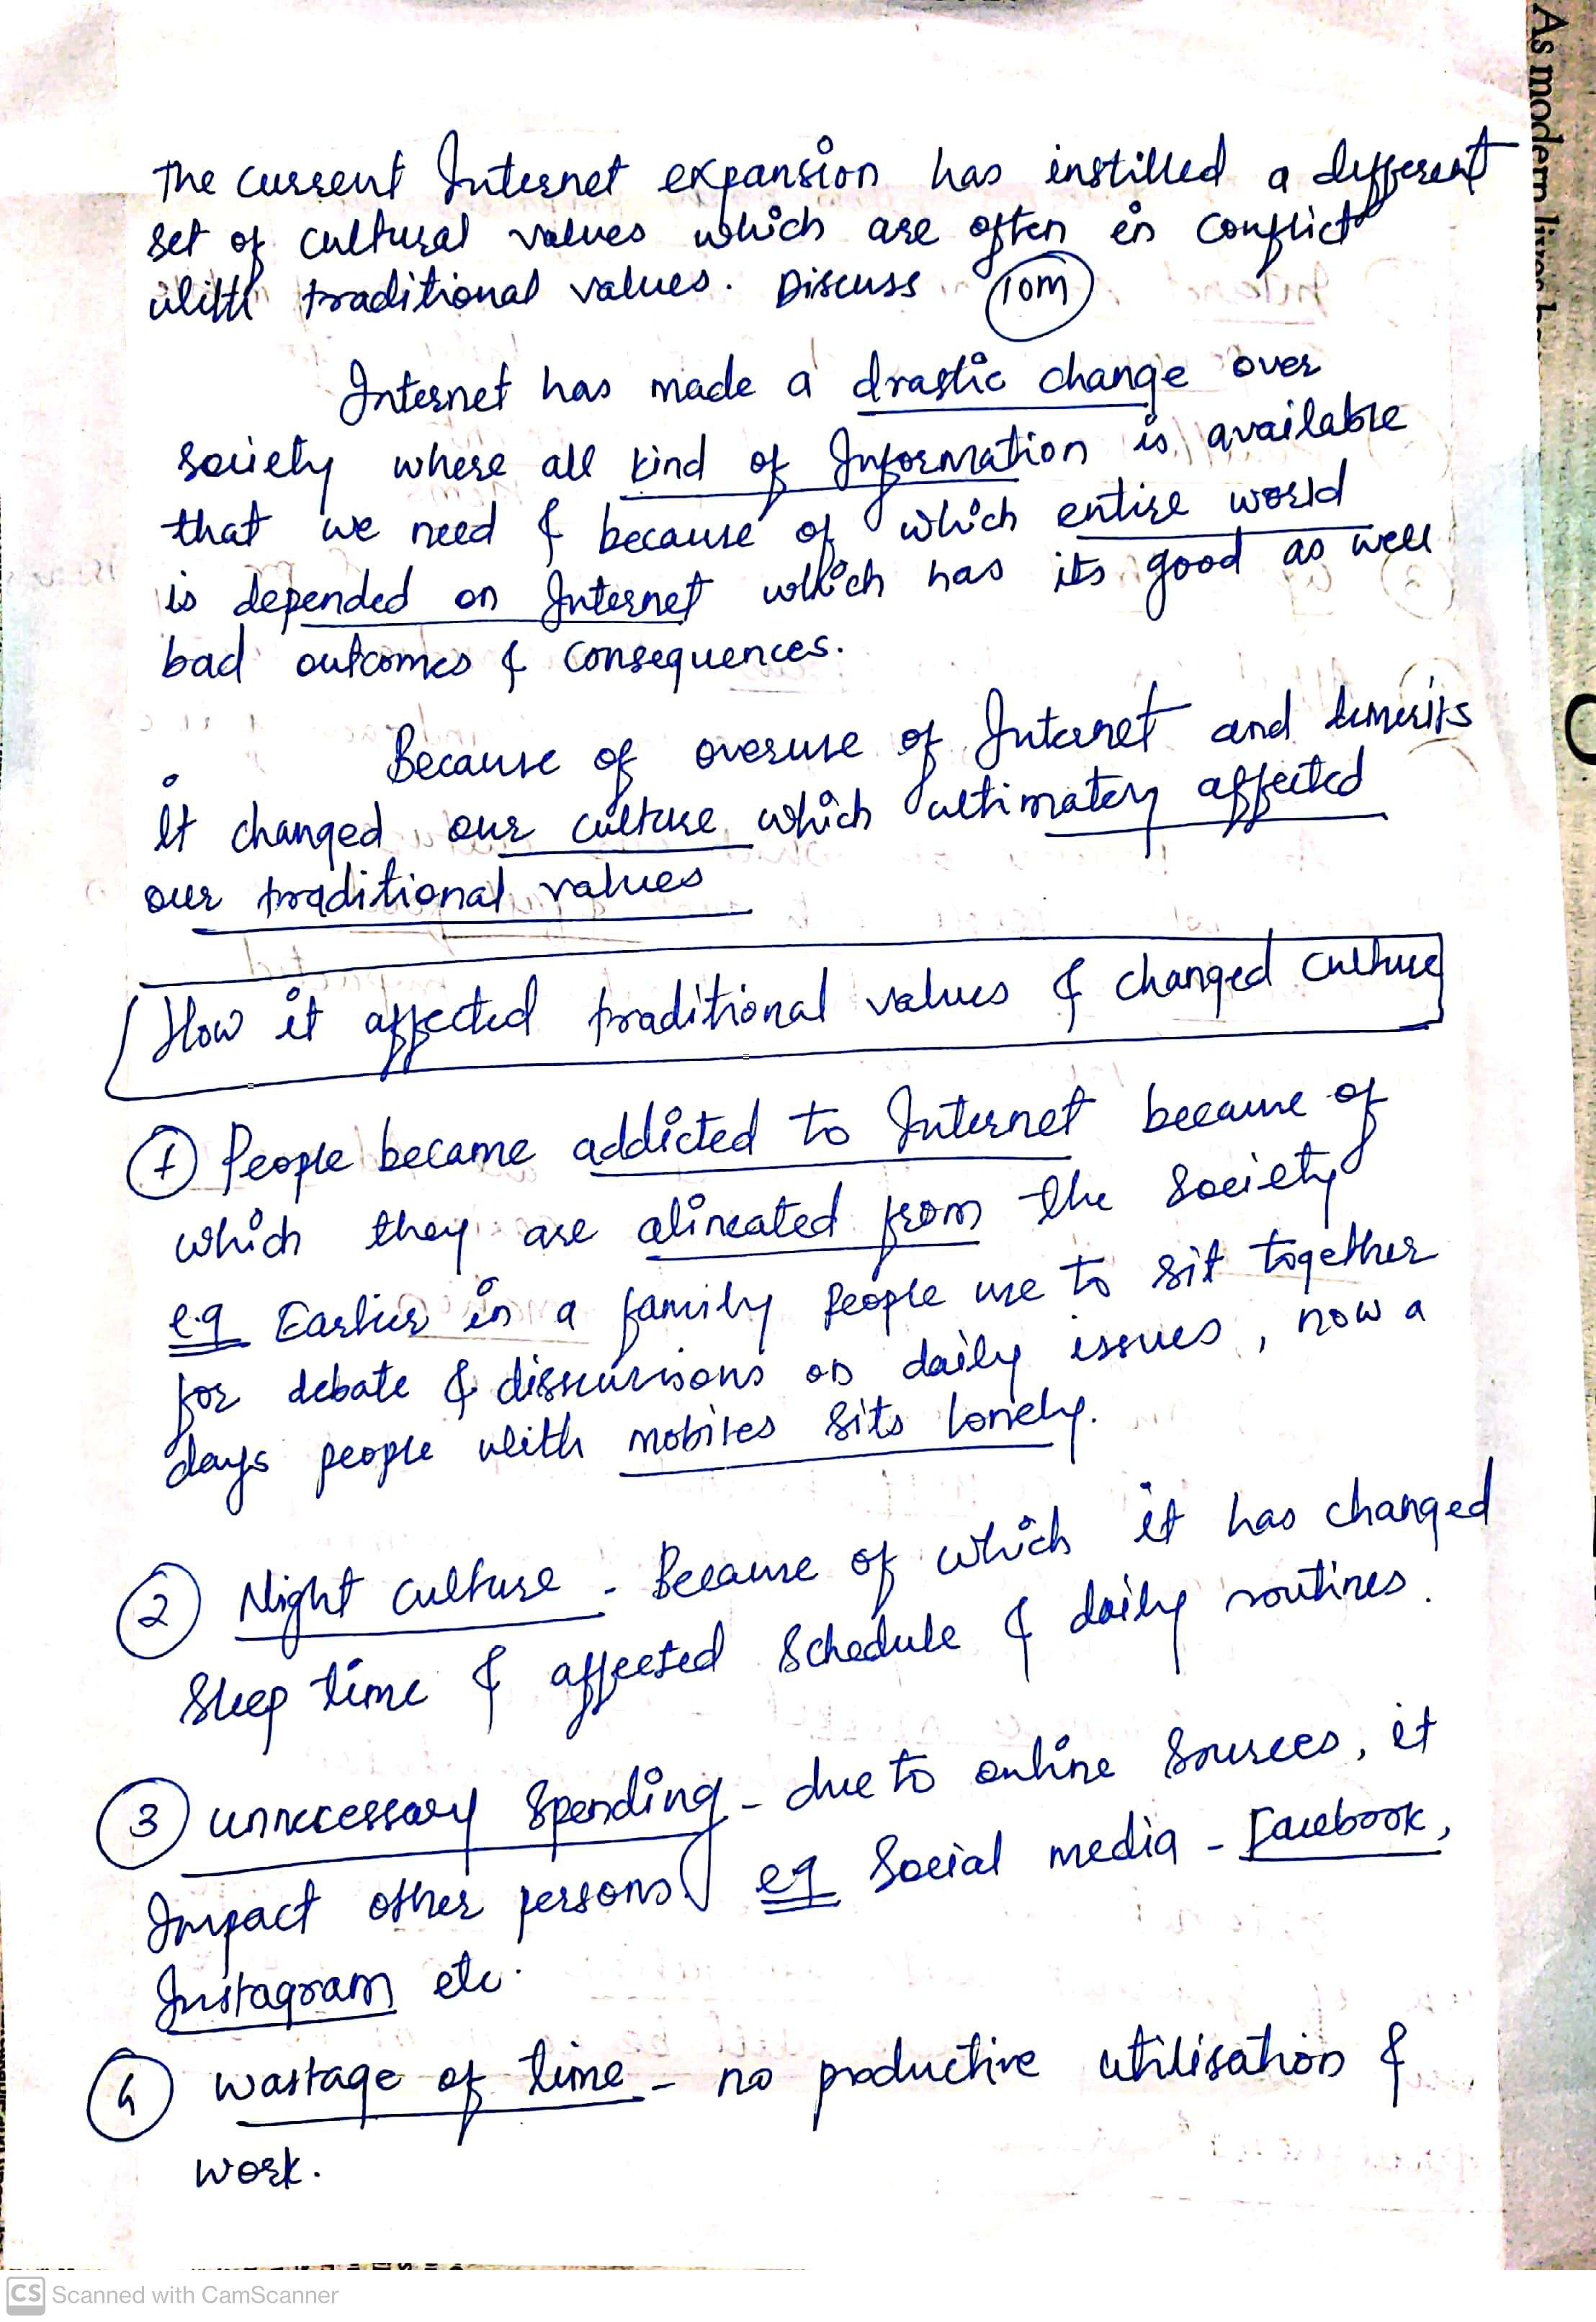 The current Internet expansion has instilled a different
set of cultural values which are often in conflict
with traditional values. Discuss 10m
Internet has made a drastic change over
society where all kind of Information is available
that we need & because of which entire world
is depended on Internet which has its good as well
bad outcomes & consequences.
Because of overuse of Internet and demerits
it changed our culture which ultimately affected
our traditional values
How it affected traditional values & changed culture
1 People became addicted to Internet because of
which they are alineated from the society
e.g Earlier in a family people use to sit together
for debate & discussions on daily issues, now a
days people with mobiles sits lonely.
2 Night culture - Because of which it has changed
sleep time & affected schedule & daily routines.
3 unnecessary spending - due to online sources, it
Impact other persons. eg Social media - Facebook,
Instagram etc.
4 wastage of time - no productive utilisation &
work.
As modern lives
CS Scanned with CamScanner